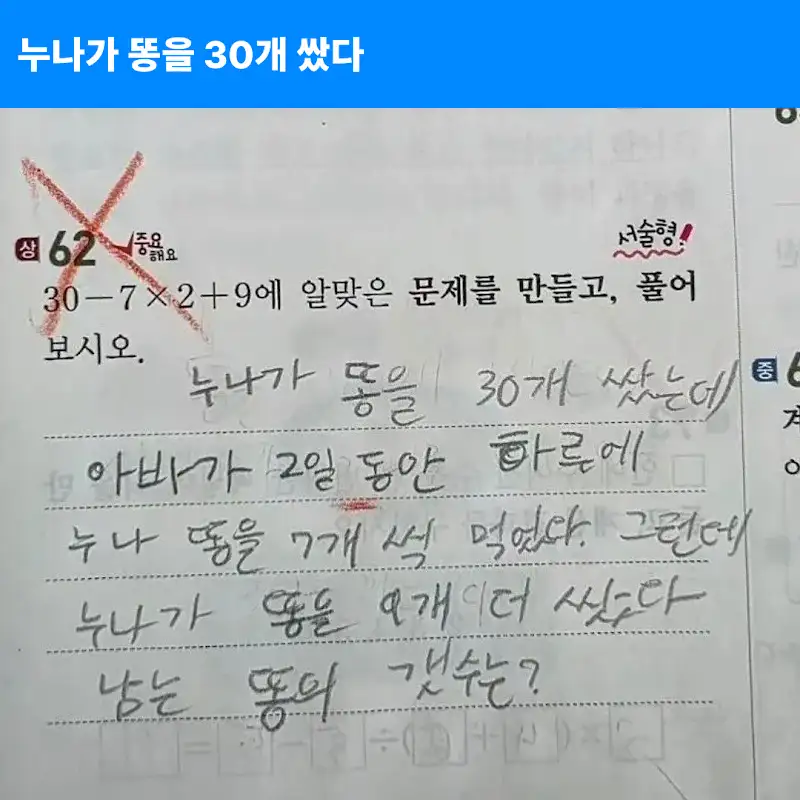 누나가 똥을 30개 쌌다
상 62 중요해요
서술형!
30-7×2+9에 알맞은 문제를 만들고, 풀어
보시오.
누나가 똥을 30개 쌌는데
아바가 2일 동안 하루에
누나 똥을 7개 씩 먹었다. 그런데
누나가 똥을 9개 더 쌌다
남는 똥의 갯수는?
중 6